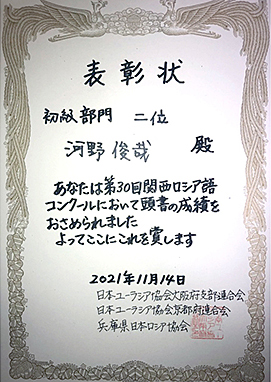 表彰状
初級部門 二位
河野俊哉 殿
あなたは第30回関西ロシア語
コンクールにおいて頭書の成績を
おさめられました
よってここにこれを賞します
2021年11月14日
日本ユーラシア協会大阪府支部連合会
日本ユーラシア協会京都府連合会
兵庫県日本ロシア協会